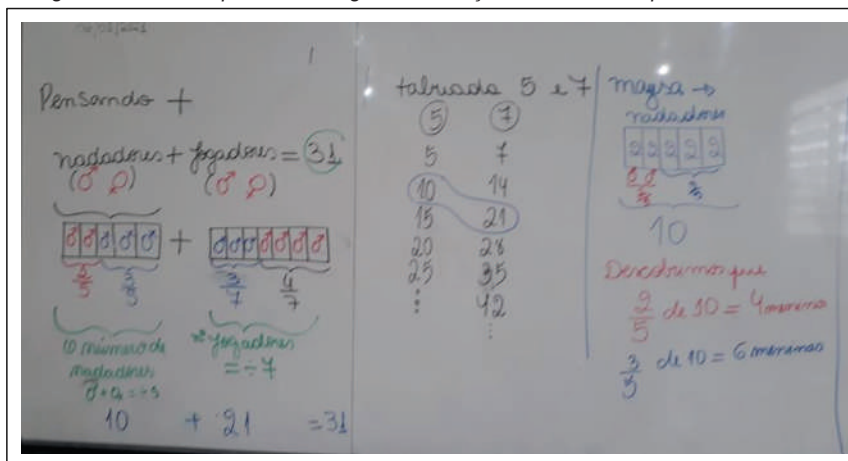 Pensando +
nadadores + jogadores = 31
(♂ ♀) (♂ ♀)
+
2/5 3/5 3/7 4/7
O número de
nadadores
nº jogadores
= ÷ 7
10 + 21 = 31
tabuada 5 e 7
5 7
5 7
10 14
15 21
20 28
25 35
⋮ 42
⋮
nadadores
2 2 2 2 2
10
Descobrimos que
2/5 de 10 = 4 meninos
3/5 de 10 = 6 meninas